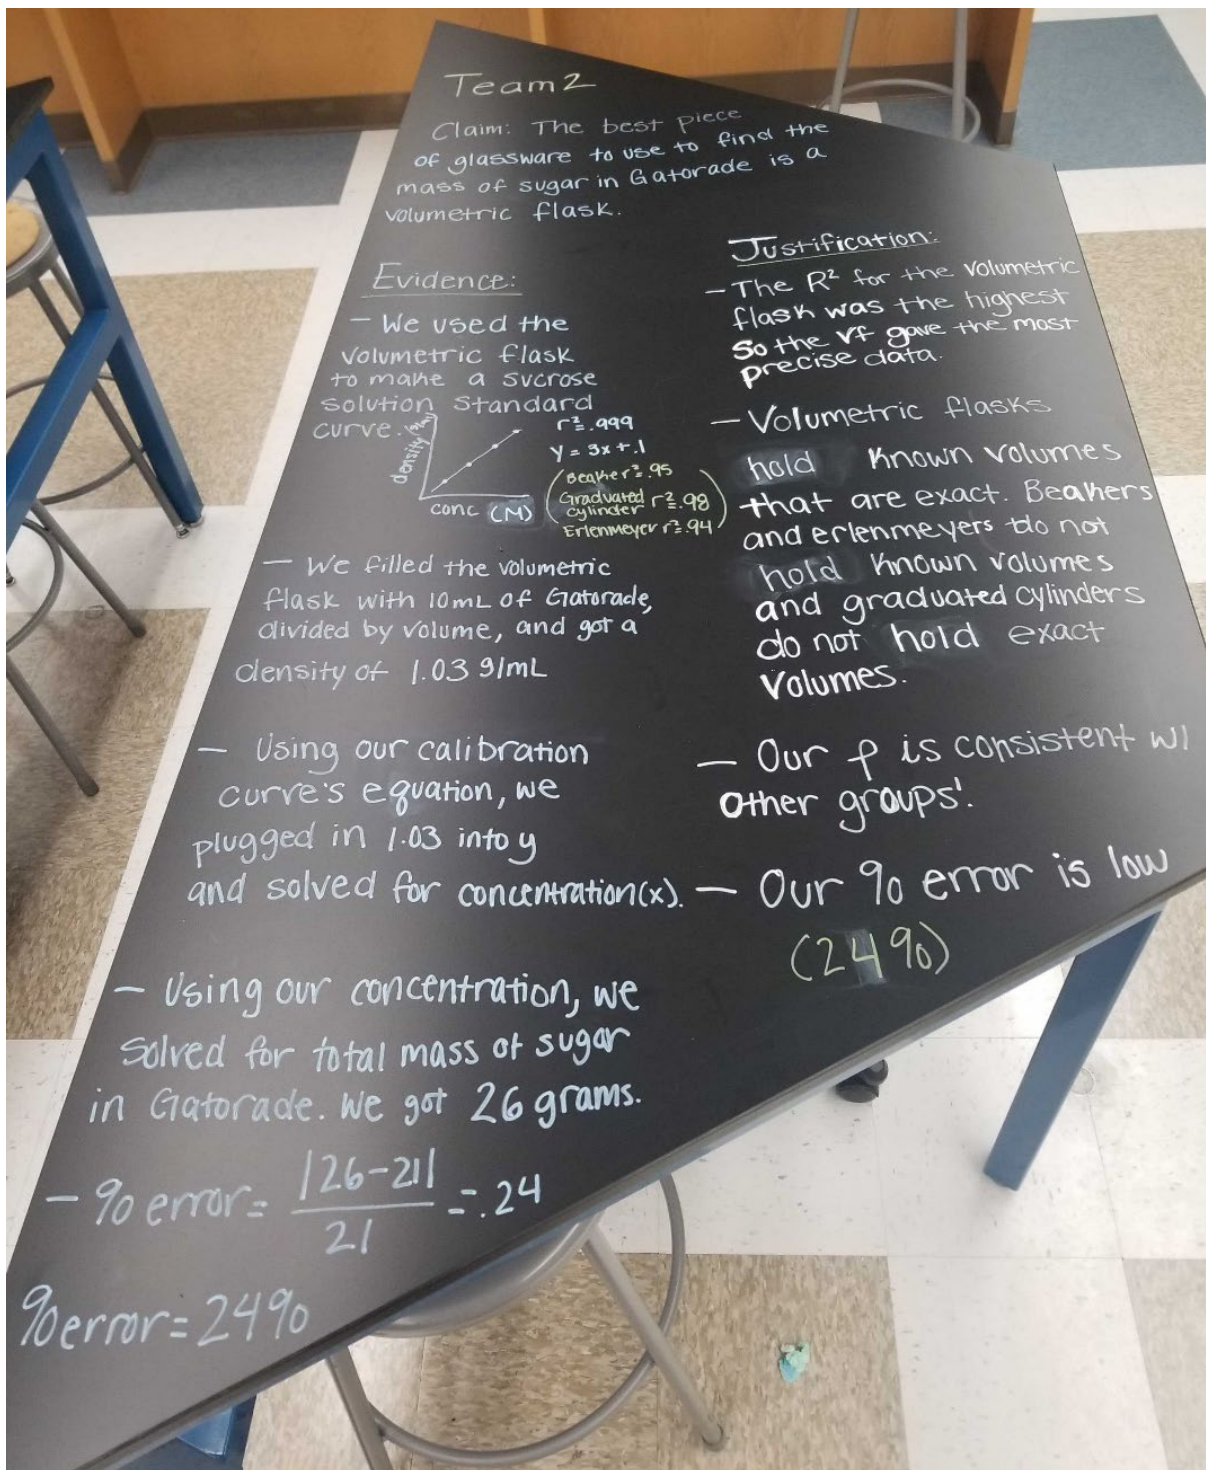 Team 2
Claim: The best piece
of glassware to use to find the
mass of sugar in Gatorade is a
volumetric flask.
Evidence:
- We used the
volumetric flask
to make a sucrose
solution standard
curve.
density (g/mL)
conc (M)
r²=.999
y = 3x+.1
(Beaker r²=.95
Graduated
cylinder r²=.98
Erlenmeyer r²=.94)
- We filled the volumetric
flask with 10mL of Gatorade,
divided by volume, and got a
density of 1.03 g/mL
- Using our calibration
curve's equation, we
plugged in 1.03 into y
and solved for concentration(x).
- Using our concentration, we
solved for total mass of sugar
in Gatorade. We got 26 grams.
- % error = |26-21| / 21 = .24
% error = 24%
Justification:
- The R² for the volumetric
flask was the highest
so the vf gave the most
precise data.
- Volumetric flasks
hold known volumes
that are exact. Beakers
and erlenmeyers do not
hold known volumes
and graduated cylinders
do not hold exact
volumes.
- Our ρ is consistent w/
other groups'.
- Our % error is low
(24%)